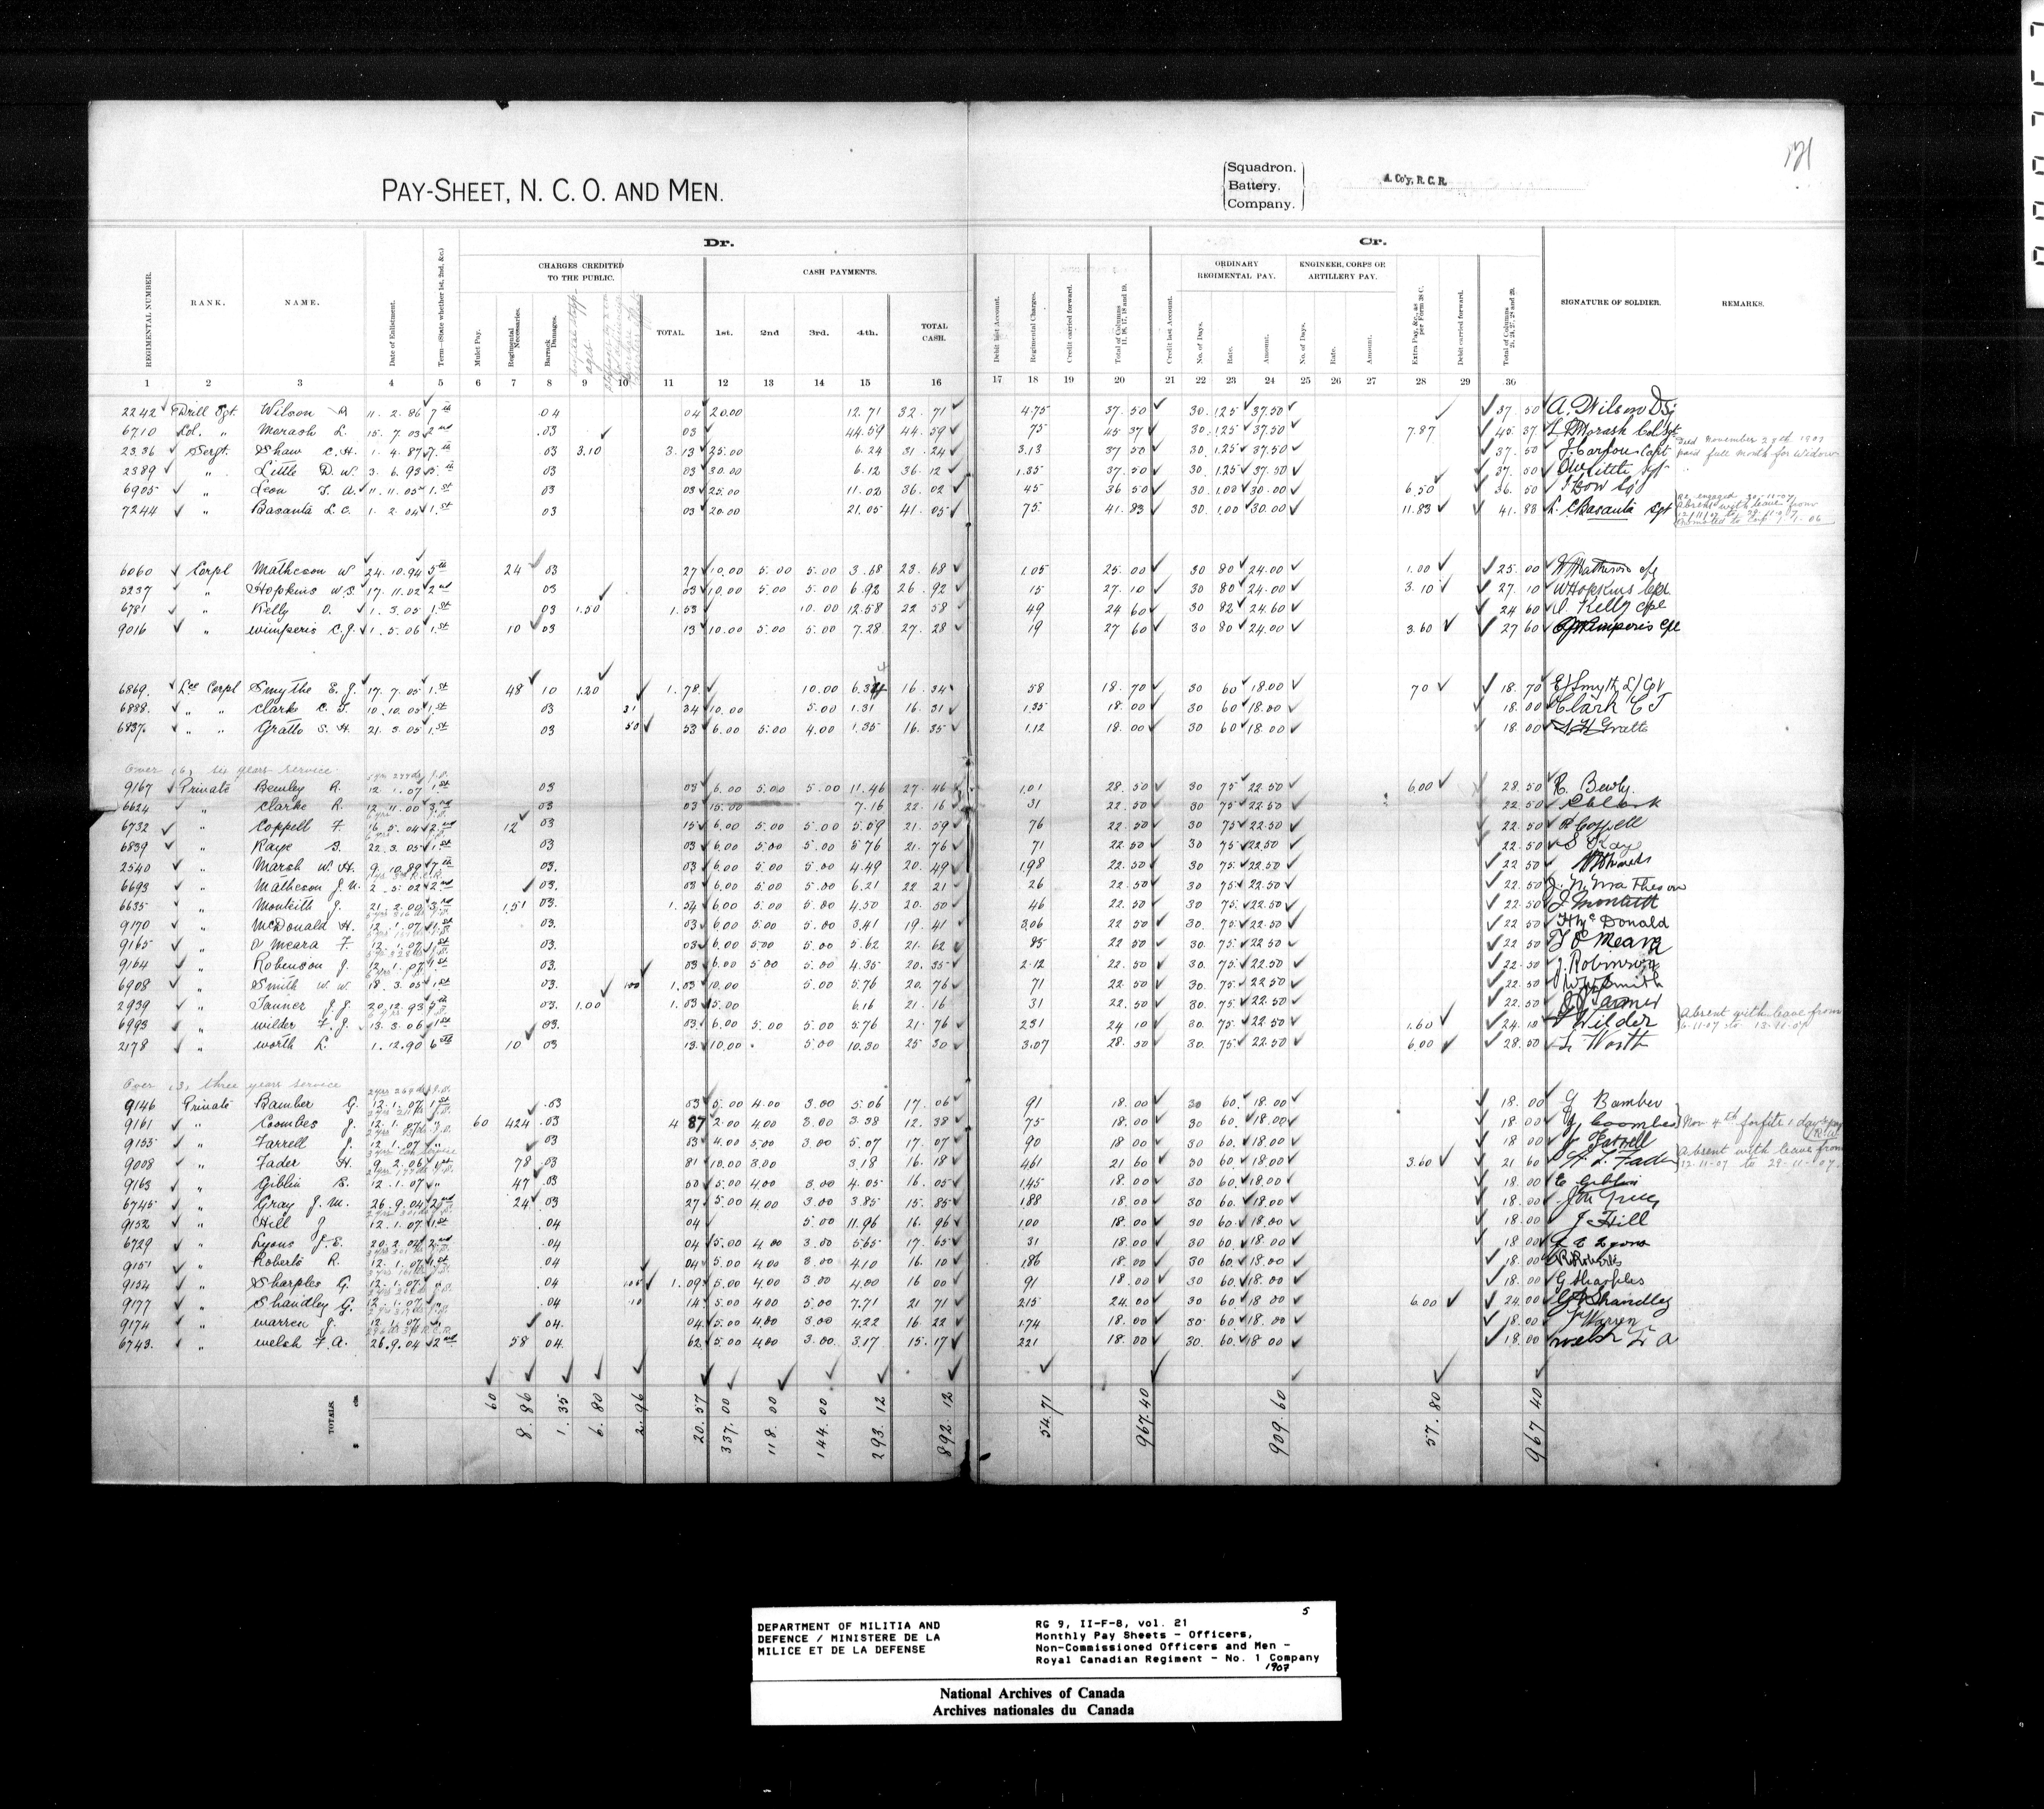 121
PAY-SHEET, N. C. O. AND MEN.
Squadron.
Battery.
Company.
A. Co'y, R. C. R.
Dr.
Cr.
CHARGES CREDITED TO THE PUBLIC.
CASH PAYMENTS.
ORDINARY REGIMENTAL PAY.
ENGINEER, CORPS OR ARTILLERY PAY.
REGIMENTAL NUMBER. RANK. NAME. Date of Enlistment. Term—(State whether 1st, 2nd, &c.) Mulct Pay. Regimental Necessaries. Barrack Damages. TOTAL. 1st. 2nd 3rd. 4th. TOTAL CASH. Debit last Account. Regimental Charges. Credit carried forward. Total of Columns 11, 16, 17, 18 and 19. Credit last Account. No. of Days. Rate. Amount. No. of Days. Rate. Amount. Extra Pay, &c., as per Form 38 C. Debit carried forward. Total of Columns 21, 24, 27, 28 and 29. SIGNATURE OF SOLDIER. REMARKS.
1 2 3 4 5 6 7 8 9 10 11 12 13 14 15 16 17 18 19 20 21 22 23 24 25 26 27 28 29 30
2242 Drill Sgt. Wilson A. 11. 2. 86 7th .04 04 20.00 12.71 32.71 4.75 37.50 30 1.25 37.50 37.50 A. Wilson
6710 Col. " Morash L. 15. 7. 03 2nd .03 03 44.59 44.59 75 45 37 30 1.25 37.50 7.87 45.37 Morash Col Sgt
2336 Sergt. Shaw C. H. 1. 4. 87 7th 03 3.10 3.13 25.00 6.24 31.24 3.13 37 50 30 1.25 37.50 37.50 Capt Died November 27th 1907 paid full month for Widow
2389 " Little D. W. 3. 6. 93 5th 03 03 30.00 6.12 36.12 1.35 37.50 30 1.25 37.50 37.50
6905 " Leon 11. 11. 05 1st 03 03 25.00 11.02 36.02 45 36 50 30 1.00 30.00 6.50 36.50
7244 " Basanta L. C. 1. 2. 04 1st 03 03 20.00 21.05 41.05 75 41.83 30 1.00 30.00 11.83 41.83 L. C Basanta Sgt Re engaged 30-11-07 Absent with leave from
6060 Corpl Matheson W. 24. 10. 94 5th 24 03 27 10.00 5.00 5.00 3.68 23.68 1.05 25.00 30 80 24.00 1.00 25.00 W Matheson
5237 " Hopkins W. S. 17. 11. 02 2nd 03 03 10.00 5.00 5.00 6.92 26.92 15 27.10 30 80 24.00 3.10 27.10 W Hopkins
6781 " Kelly O. 1. 3. 05 1st 03 1.50 1.53 10.00 12.58 22 58 49 24 60 30 82 24.60 24 60 Kelly Cpl
9016 " Wimperis C. J. 1. 5. 06 1st 10 03 13 10.00 5.00 5.00 7.28 27.28 19 27 60 30 80 24.00 3.60 27 60 Wimperis Cpl
6869. Lce Corpl Smythe E. J. 17. 7. 05 1st 48 10 1.20 1.78 10.00 6.34 16.34 58 18.70 30 60 18.00 70 18.70 E J Smyth
6888. " " Clarke C. T. 10. 10. 05 1st 03 31 34 10.00 5.00 1.31 16.31 1.35 18.00 30 60 18.00 18.00 Clark C T
6837. " " Gratto S. H. 21. 3. 05 1st 03 50 53 6.00 5.00 4.00 1.35 16.35 1.12 18.00 30 60 18.00 18.00 S H Gratto
Over (6) six years service
9167 Private Bewley R. 12 1. 07 1st 03 03 6.00 5.00 5.00 11.46 27.46 1.01 28.50 30 75 22.50 6.00 28.50 R. Bewly.
6624 " Clarke R. 12. 11. 00 3rd 03 03 15.00 7.16 22.16 31 22.50 30 75 22.50 22.50
6732 " Coppell F. 16. 5. 04 2nd 12 03 15 6.00 5.00 5.00 5.59 21.59 76 22.50 30 75 22.50 22.50 Coppell
6839 " Kaye S. 22. 3. 05 1st 03 03 6.00 5.00 5.00 5.76 21.76 71 22.50 30 75 22.50 22.50 S Kaye
2540 " Marsh W. H. 9. 10. 89 7th 03. 03 6.00 5.00 5.00 4.49 20.49 1.98 22.50 30 75 22.50 22.50
6693 " Matheson J. N. 2. 5. 02 2nd 03. 03 6.00 5.00 5.00 6.21 22 21 26 22.50 30 75 22.50 22.50 J. N. Matheson
6635 " Monteith J. 21. 2. 00 3rd 1.51 03. 1.54 6.00 5.00 5.00 4.50 20.50 46 22.50 30 75 22.50 22.50 J Monteith
9170 " McDonald H. 12. 1. 07 1st 03. 03 6.00 5.00 5.00 3.41 19.41 3.06 22.50 30. 75 22.50 22.50 H McDonald
9165 " O'Meara F. 12. 1. 07 1st 03. 03 6.00 5.00 5.00 5.62 21.62 85 22 50 30. 75 22.50 22.50 O'Meara
9164 " Robinson J. 12. 1. 07 1st 03. 03 6.00 5.00 5.00 4.35 20.35 2.12 22.50 30. 75 22.50 22.50 J. Robinson
6908 " Smith W. W. 18. 3. 05 1st 03. 1.00 1.03 10.00 5.00 5.76 20.76 71 22.50 30. 75 22.50 22.50 W W Smith
2939 " Tanner J. J. 20. 12. 93 5th 03. 1.00 1.03 15.00 6.16 21.16 31 22.50 30. 75 22.50 22.50 J J Tanner
6993 " Wilder F. J. 13. 3. 06 1st 03. 03 6.00 5.00 5.00 5.76 21.76 2.31 24 10 30. 75 22.50 1.60 24.10 Wilder Absent with leave from
2178 " Worth L. 1. 12. 90 6th 10 03 13. 10.00 5.00 10.30 25 30 3.07 28.50 30 75 22.50 6.00 28.50 L Worth
Over (3) three years service
9146 Private Bamber G. 12. 1. 07 1st .03 03 5.00 4.00 3.00 5.06 17.06 91 18.00 30 60 18.00 18.00 G Bamber
9161 " Coombes J. 12. 1. 07 " 60 4.24 .03 4 87 2.00 4.00 3.00 3.38 12.38 75 18.00 30 60 18.00 18.00 J Coombes Nov 4th forfeits 1 days pay
9155 " Farrell J. 12. 1. 07 " 03 03 4.00 5.00 3.00 5.07 17.07 90 18.00 30 60. 18.00 18.00 J Farrell
9008 " Fader H. 9. 2. 06 1st 78 .03 81 10.00 3.00 3.18 16.18 4.61 21 60 30 60. 18.00 3.60 21 60 Fader Absent with leave from 12-11-07 to 29-11-07.
9163 " Giblin E. 12. 1. 07 " 47 .03 50 5.00 4.00 3.00 4.05 16.05 1.45 18.00 30 60. 18.00 18.00 E Giblin
6745 " Gray J. M. 26. 9. 04 2nd 24 03 27 5.00 4.00 3.00 3.85 15.85 1.88 18.00 30 60. 18.00 18.00
9152 " Hill J 12. 1. 07 1st .04 04 5.00 11.96 16.96 1.00 18.00 30 60. 18.00 18.00 J Hill
6729 " Lyons J. E. 20. 2. 04 2nd .04 04 5.00 4.00 3.00 5.65 17.65 31 18.00 30 60. 18.00 18.00 Lyons
9151 " Roberts R. 12. 1. 07 1st .04 04 5.00 4.00 3.00 4.10 16.10 1.86 18.00 30 60. 18.00 18.00 R Roberts
9154 " Sharples G. 12. 1. 07 " .04 1.05 1.09 5.00 4.00 3.00 4.00 16 00 91 18.00 30 60. 18.00 18.00 G Sharples
9177 " Shandley G. 12. 1. 07 " .04 10 14 5.00 4.00 5.00 7.71 21 71 2.15 24.00 30 60 18 00 6.00 24.00 Shandley
9174 " Warren J. 12. 1. 07 " 04. 04 5.00 4.00 3.00 4.22 16.22 1.74 18.00 30 60 18.00 18.00 J Warren
6743. " Welsh F. A. 26. 9. 04 2nd 58 04. 62 5.00 4.00 3.00 3.17 15.17 2.21 18.00 30. 60 18 00 18.00 Welsh F A
TOTALS. $ cts 60 8.86 1.35 6.80 2.96 20.57 337.00 118.00 144.00 293.12 892.12 54.71 967.40 909.60 57.80 967 40
DEPARTMENT OF MILITIA AND
DEFENCE / MINISTERE DE LA
MILICE ET DE LA DEFENSE
5
RG 9, II-F-8, vol. 21
Monthly Pay Sheets - Officers,
Non-Commissioned Officers and Men -
Royal Canadian Regiment - No. 1 Company
1907
National Archives of Canada
Archives nationales du Canada